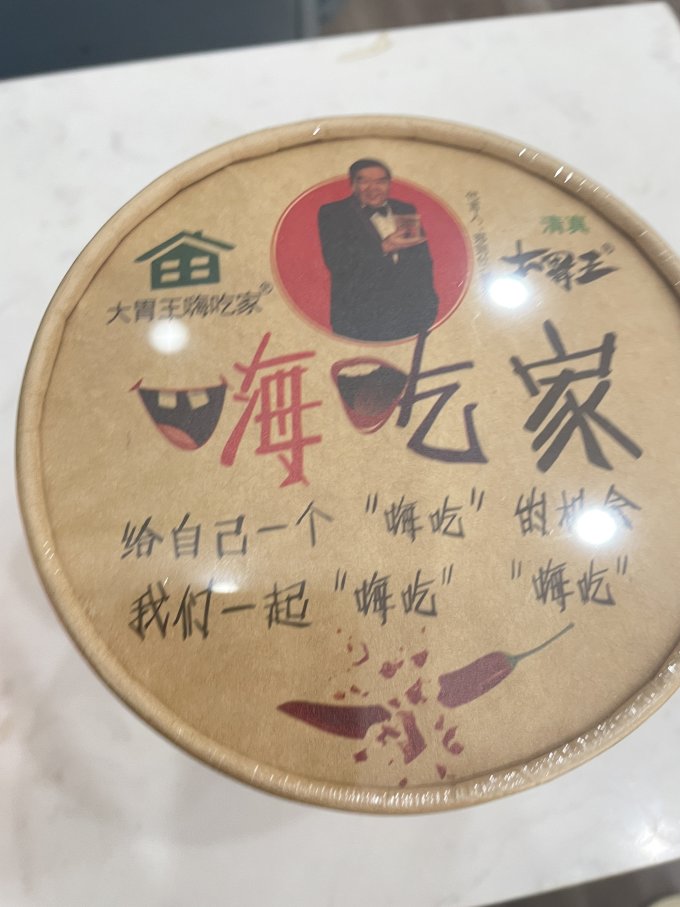 大胃王嗨吃家®
清真
大胃王®
嗨吃家
给自己一个“嗨吃”的机会
我们一起“嗨吃” “嗨吃”